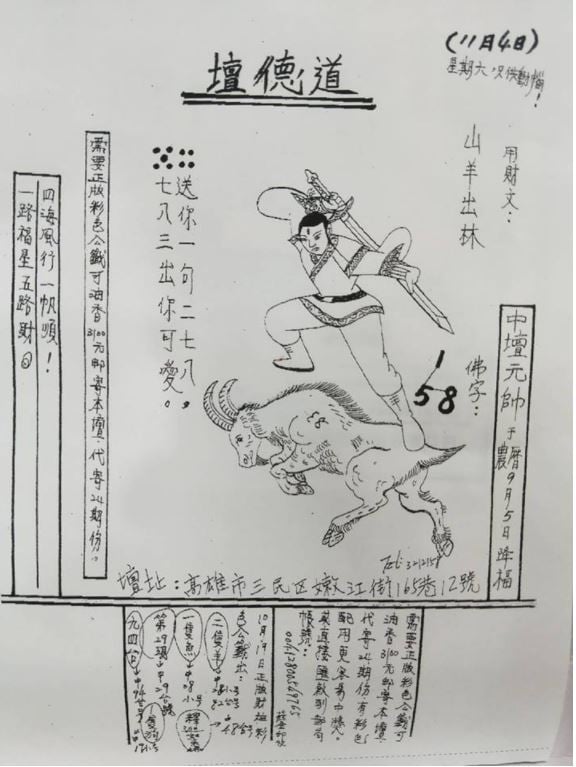 (11月4日)
星期六只供動惱!
道德壇
用財文:
山羊出林
佛字:
1
58
58
中壇元帥于農曆9月5日降福
送你一句二七八,
七八三出你可愛。
需要正版彩色公籤可油香3100元郵寄本壇.代寄24期份。
四海風行一帆順!
一路福星五路財
壇址:高雄市三民区嫩江街165巷12號
需要正版彩色公籤可
油香3100元郵寄本壇.
代寄24期份.有彩色
配用更容易中獎。
帳號:
10月19日正版財神彩
色公籤出:
二隻羊
一隻魚
第29碼
29合號
九四台